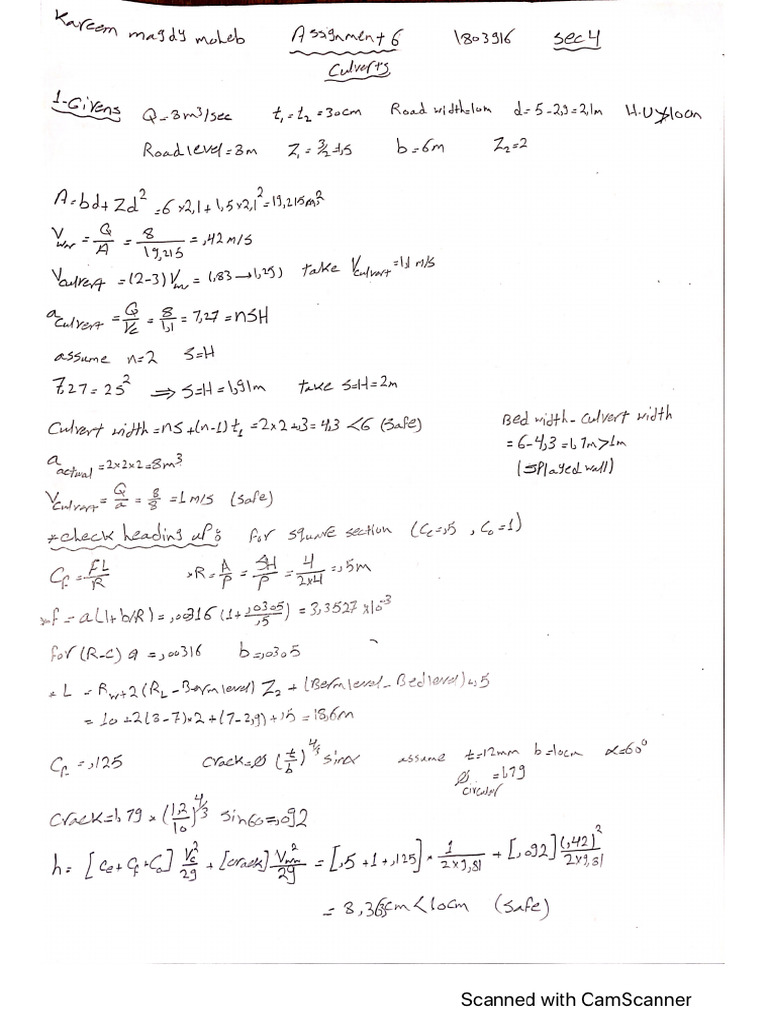 Kareem magdy moheb Assignment 6 1803916 sec 4
Culverts
1-Givens Q=8m³/sec t₁=t₂=30cm Road width=10m d=5-2,9=2,1m H.U≯10cm
Road level=8m Z₁=3/2=1,5 b=6m Z₂=2
A=bd+Zd²=6*2,1+1,5*2,1²=19,215m²
V_w/w=Q/A=8/19,215=,42m/s
V_culvert=(2-3)V_w/w=(,83→1,25) take V_culvert=1,1 m/s
a_culvert=Q/Vc=8/1,1=7,27=nSH
assume n=2 S=H
7,27=2S² ⇒ S=H=1,91m take S=H=2m
Culvert width=nS+(n-1)t₁=2*2+,3=4,3<6 (safe)
Bed width-culvert width
=6-4,3=1,7m>1m
(splayed wall)
a_actual=2*2*2=8m³
V_culvert=Q/a=8/8=1m/s (safe)
*check heading up: for square section (Ce=,5 , Co=1)
C_f=FL/R *R=A/P=SH/P=4/(2*4)=,5m
*f=a(1+b/R)=,00316(1+,0305/,5)=3,3527*10⁻³
for (R-C) a=,00316 b=,0305
*L=R_w+2(R_L-Berm level)Z₂+(Berm level-Bed level)+,5
=10+2(8-7)*2+(7-2,9)+,5=18,6m
C_f=,125 Crack=Ø(t/b)^4/3 sinα assume t=12mm b=10cm α=60°
Ø circular=1,79
Crack=1,79*(1,2/10)^4/3 sin60=,092
h=[Ce+C_f+Co]Vc²/2g+[crack]V_w/w²/2g=[,5+1+,125]*1/(2*9,81)+[,092](,42)²/(2*9,81)
=8,363cm<10cm (safe)
Scanned with CamScanner